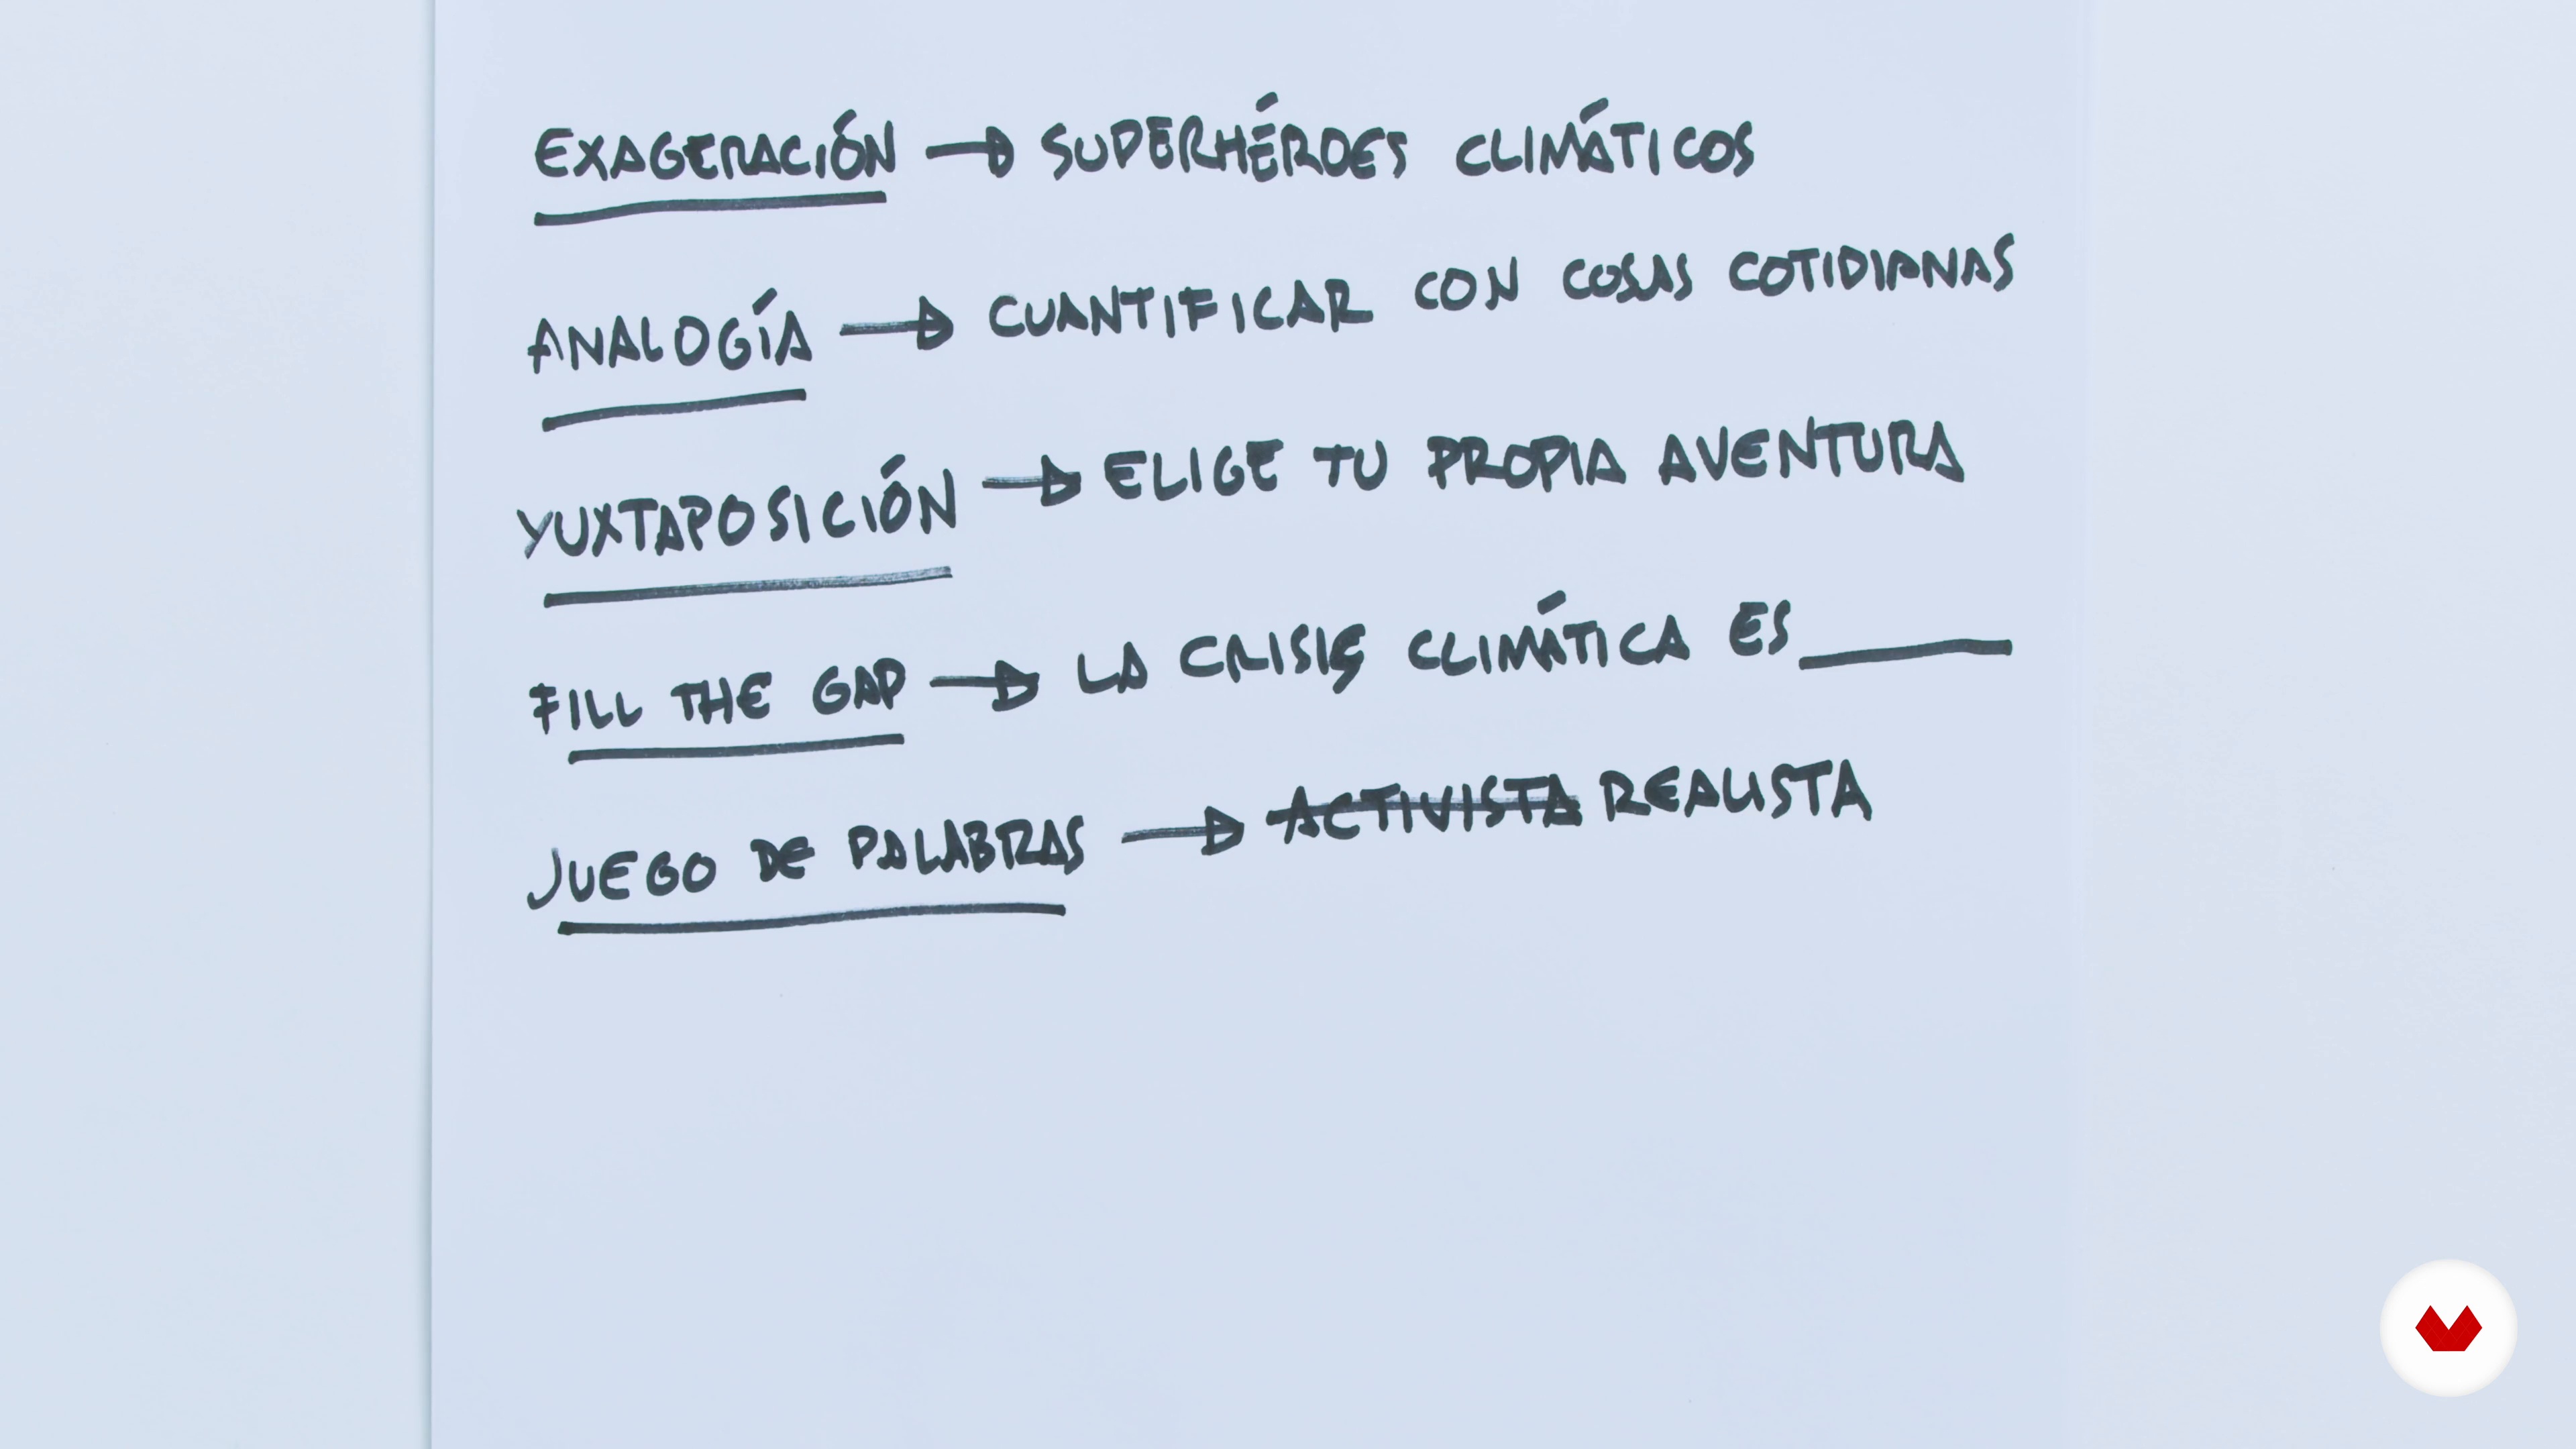 EXAGERACIÓN → SUPERHÉROES CLIMÁTICOS
ANALOGÍA → CUANTIFICAR CON COSAS COTIDIANAS
YUXTAPOSICIÓN → ELIGE TU PROPIA AVENTURA
FILL THE GAP → LA CRISIS CLIMÁTICA ES ______
JUEGO DE PALABRAS → ACTIVISTA REALISTA